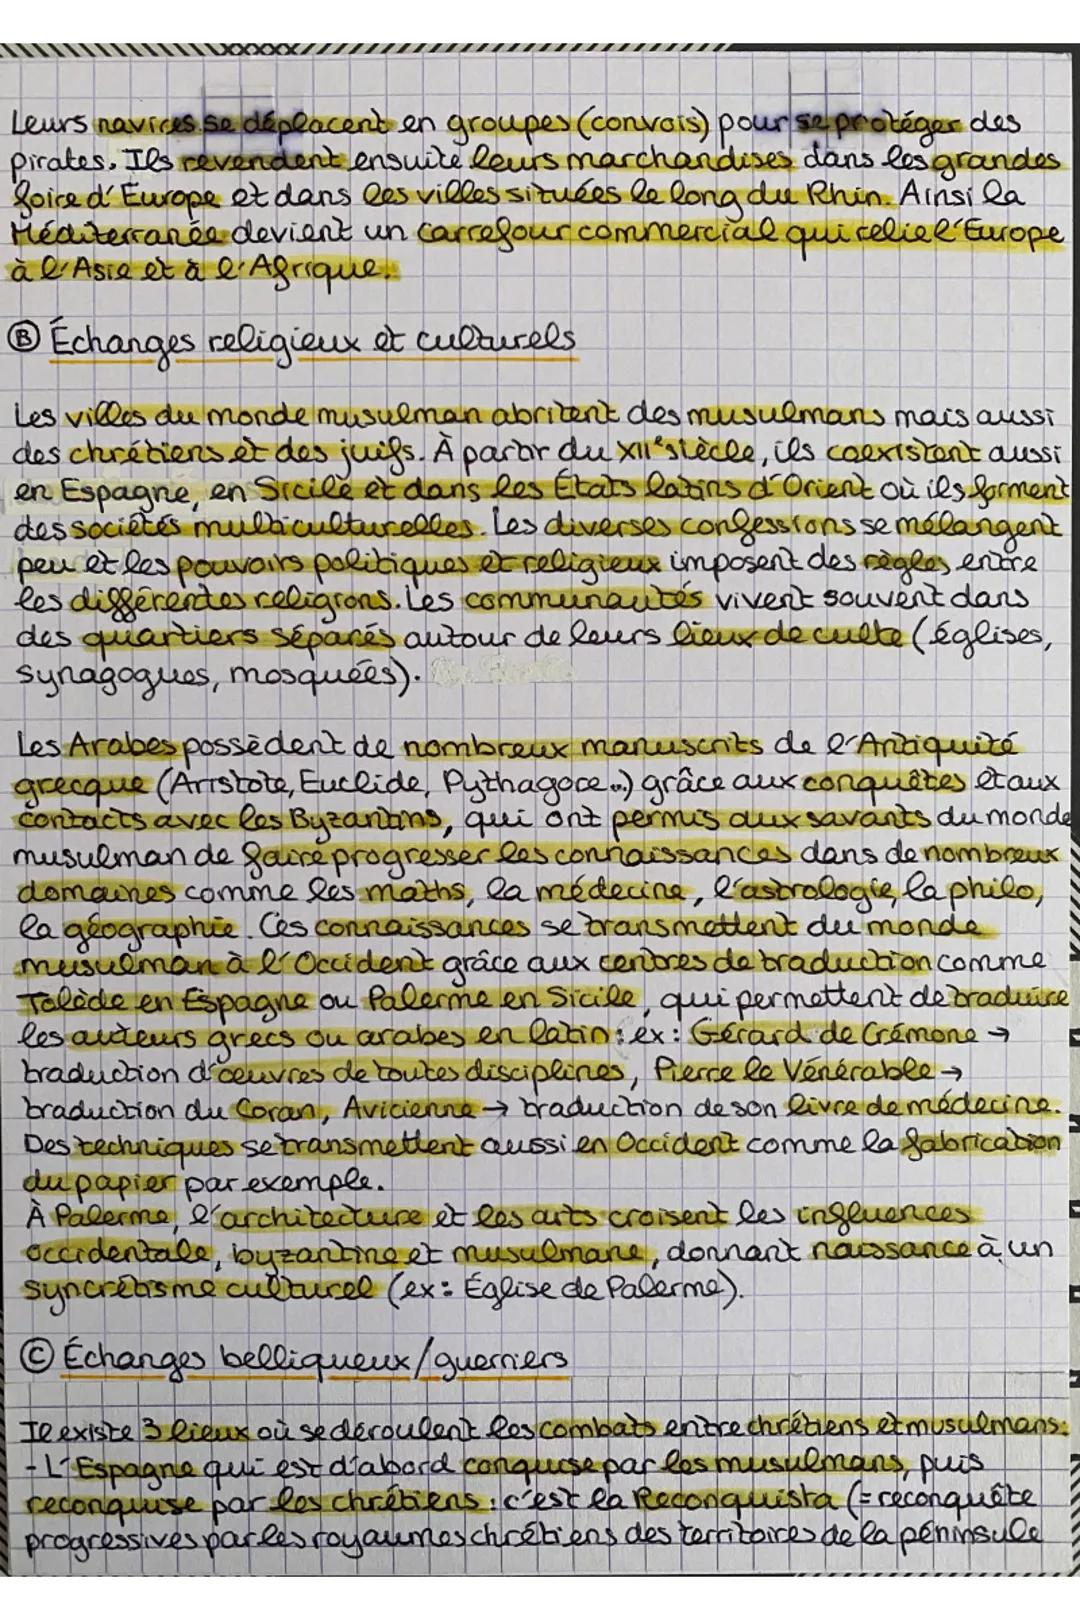 Leurs navires se déplacent en groupes (convois) pour se protéger des
pirates. Ils revendent ensuite leurs marchandises dans les grandes
foire d'Europe et dans les villes situées le long du Rhin. Ainsi la
Méditerranée devient un carrefour commercial qui relie l'Europe
à l'Asie et à l'Afrique.
Ⓑ Échanges religieux et culturels
Les villes du monde musulman abritent des musulmans mais aussi
des chrétiens et des juifs. À partir du XIIe siècle, ils coexistent aussi
en Espagne, en Sicile et dans les États latins d'Orient où ils forment
des sociétés multiculturelles. Les diverses confessions se mélangent
peu et les pouvoirs politiques et religieux imposent des règles entre
les différentes religions. Les communautés vivent souvent dans
des quartiers séparés autour de leurs lieux de culte (églises,
synagogues, mosquées).
Les Arabes possèdent de nombreux manuscrits de l'Antiquité
grecque (Aristote, Euclide, Pythagore...) grâce aux conquêtes et aux
contacts avec les Byzantins, qui ont permis aux savants du monde
musulman de faire progresser les connaissances dans de nombreux
domaines comme les maths, la médecine, l'astrologie, la philo,
la géographie. Ces connaissances se transmettent du monde
musulman à l'Occident grâce aux centres de traduction comme
Tolède en Espagne ou Palerme en Sicile, qui permettent de traduire
les auteurs grecs ou arabes en latin : ex : Gérard de Crémone →
traduction d'œuvres de toutes disciplines, Pierre le Vénérable →
traduction du Coran, Avicienne → traduction de son livre de médecine.
Des techniques se transmettent aussi en Occident comme la fabrication
du papier par exemple.
À Palerme, l'architecture et les arts croisent les influences
occidentale, byzantine et musulmane, donnant naissance à un
syncrétisme culturel (ex : Église de Palerme).
Ⓒ Échanges belliqueux/guerriers
Il existe 3 lieux où se déroulent les combats entre chrétiens et musulmans :
- L'Espagne qui est d'abord conquise par les musulmans, puis
reconquise par les chrétiens : c'est la Reconquista (= reconquête
progressives par les royaumes chrétiens des territoires de la péninsule